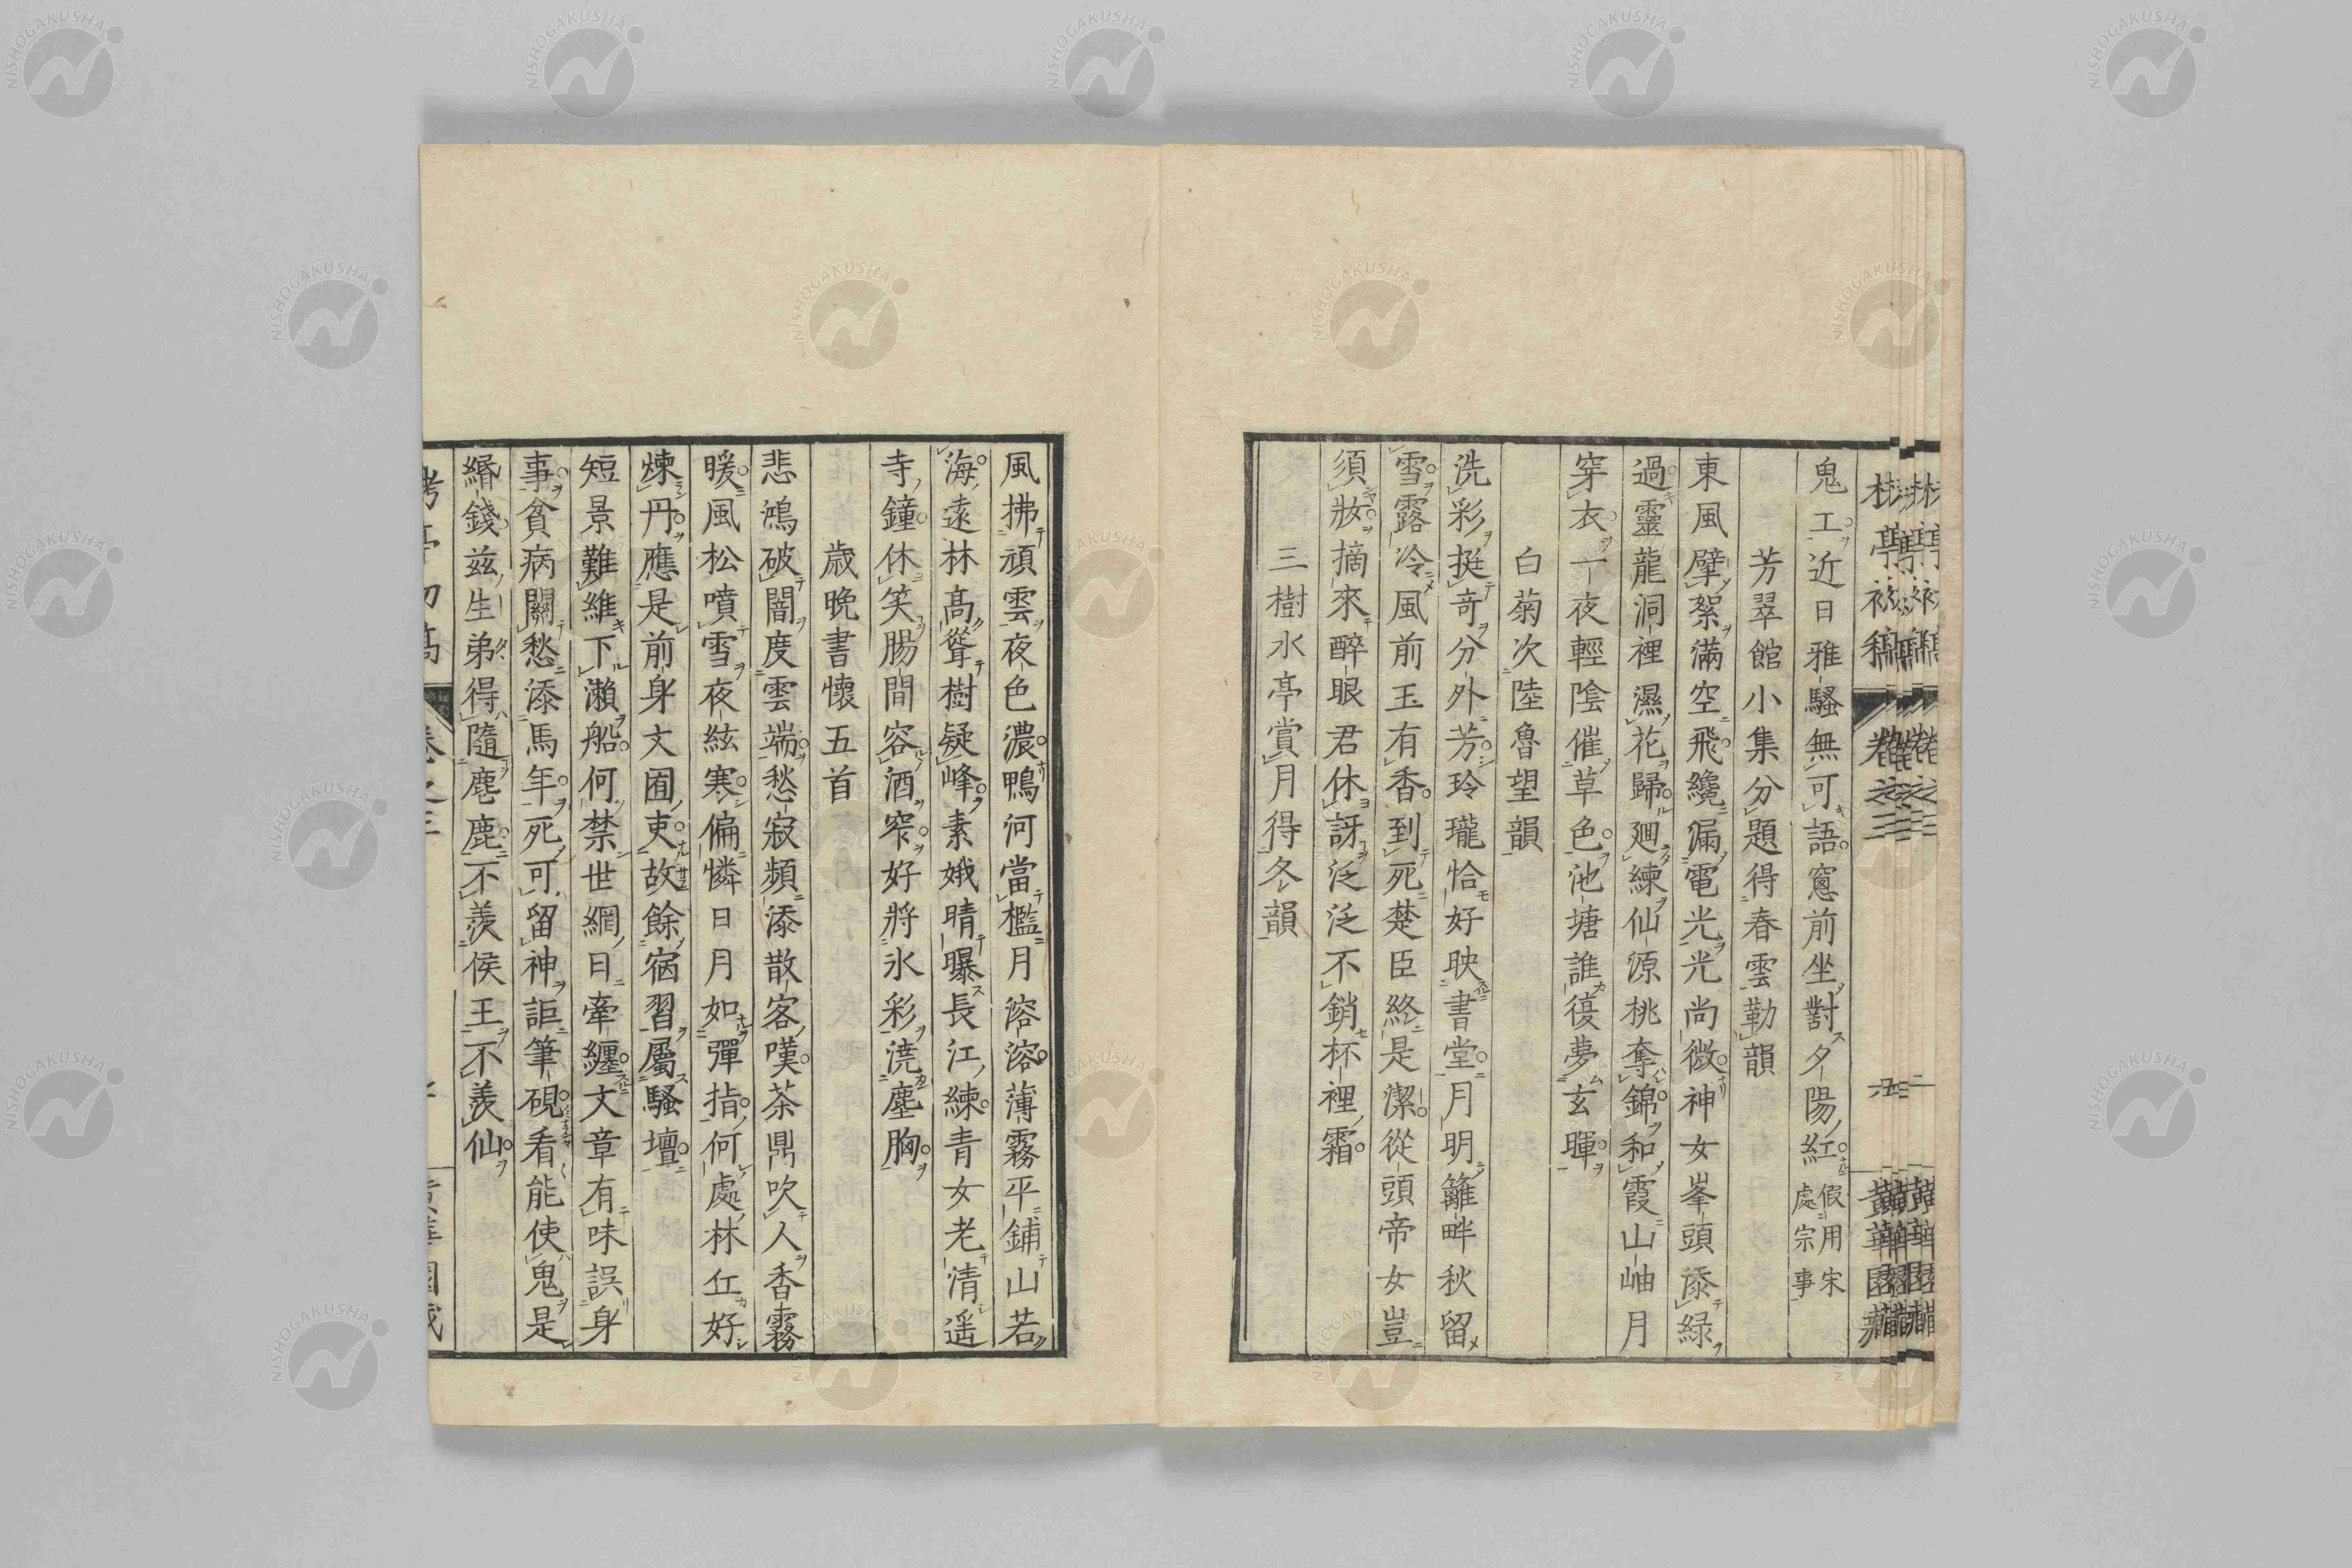 鬼工近日雅騷無可語窻前坐對夕陽紅假用宋處宗事
芳翠館小集分題得春雲勒韻
東風擘絮滿空飛纔漏電光光尚微神女峯頭添緑
過靈龍洞裡濕花歸廻練仙源桃奪錦和霞山岫月
穿衣一夜輕陰催草色池塘誰復夢玄暉
白菊次陸魯望韻
洗彩挺奇分外芳玲瓏恰好映書堂月明籬畔秋留
雪露冷風前玉有香到死楚臣終是潔從頭帝女豈
須妝摘來醉眼君休訝泛泛不銷杯裡霜
三樹水亭賞月得冬韻
風拂頑雲夜色濃鴨河當檻月溶溶薄霧平鋪山若
海遠林高聳樹疑峰素娥晴曝長江練青女老清遥
寺鐘休笑腸間容酒窄好將氷彩澆塵胸
歳晚書懷五首
悲鴻破闇度雲端愁寂頻添散客嘆茶鼎吹人香霧
暖風松噴雪夜絃寒偏憐日月如彈指何處林丘好
煉丹應是前身文囿吏故餘宿習屬騷壇
短景難維下瀬船何禁世網日牽纏文章有味誤身
事貧病關愁添馬年死可留神詎筆硯看能使鬼是
緡錢兹生弟得隨麀鹿不羨侯王不羨仙
卷之三
黄華園藏